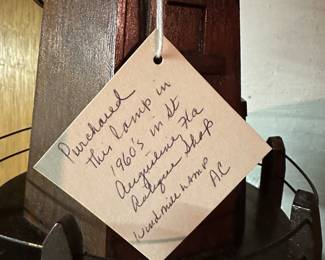 Purchased
this lamp in
1960's in St
Augustine, Fla
Antique Shop
Windmill Lamp
AC